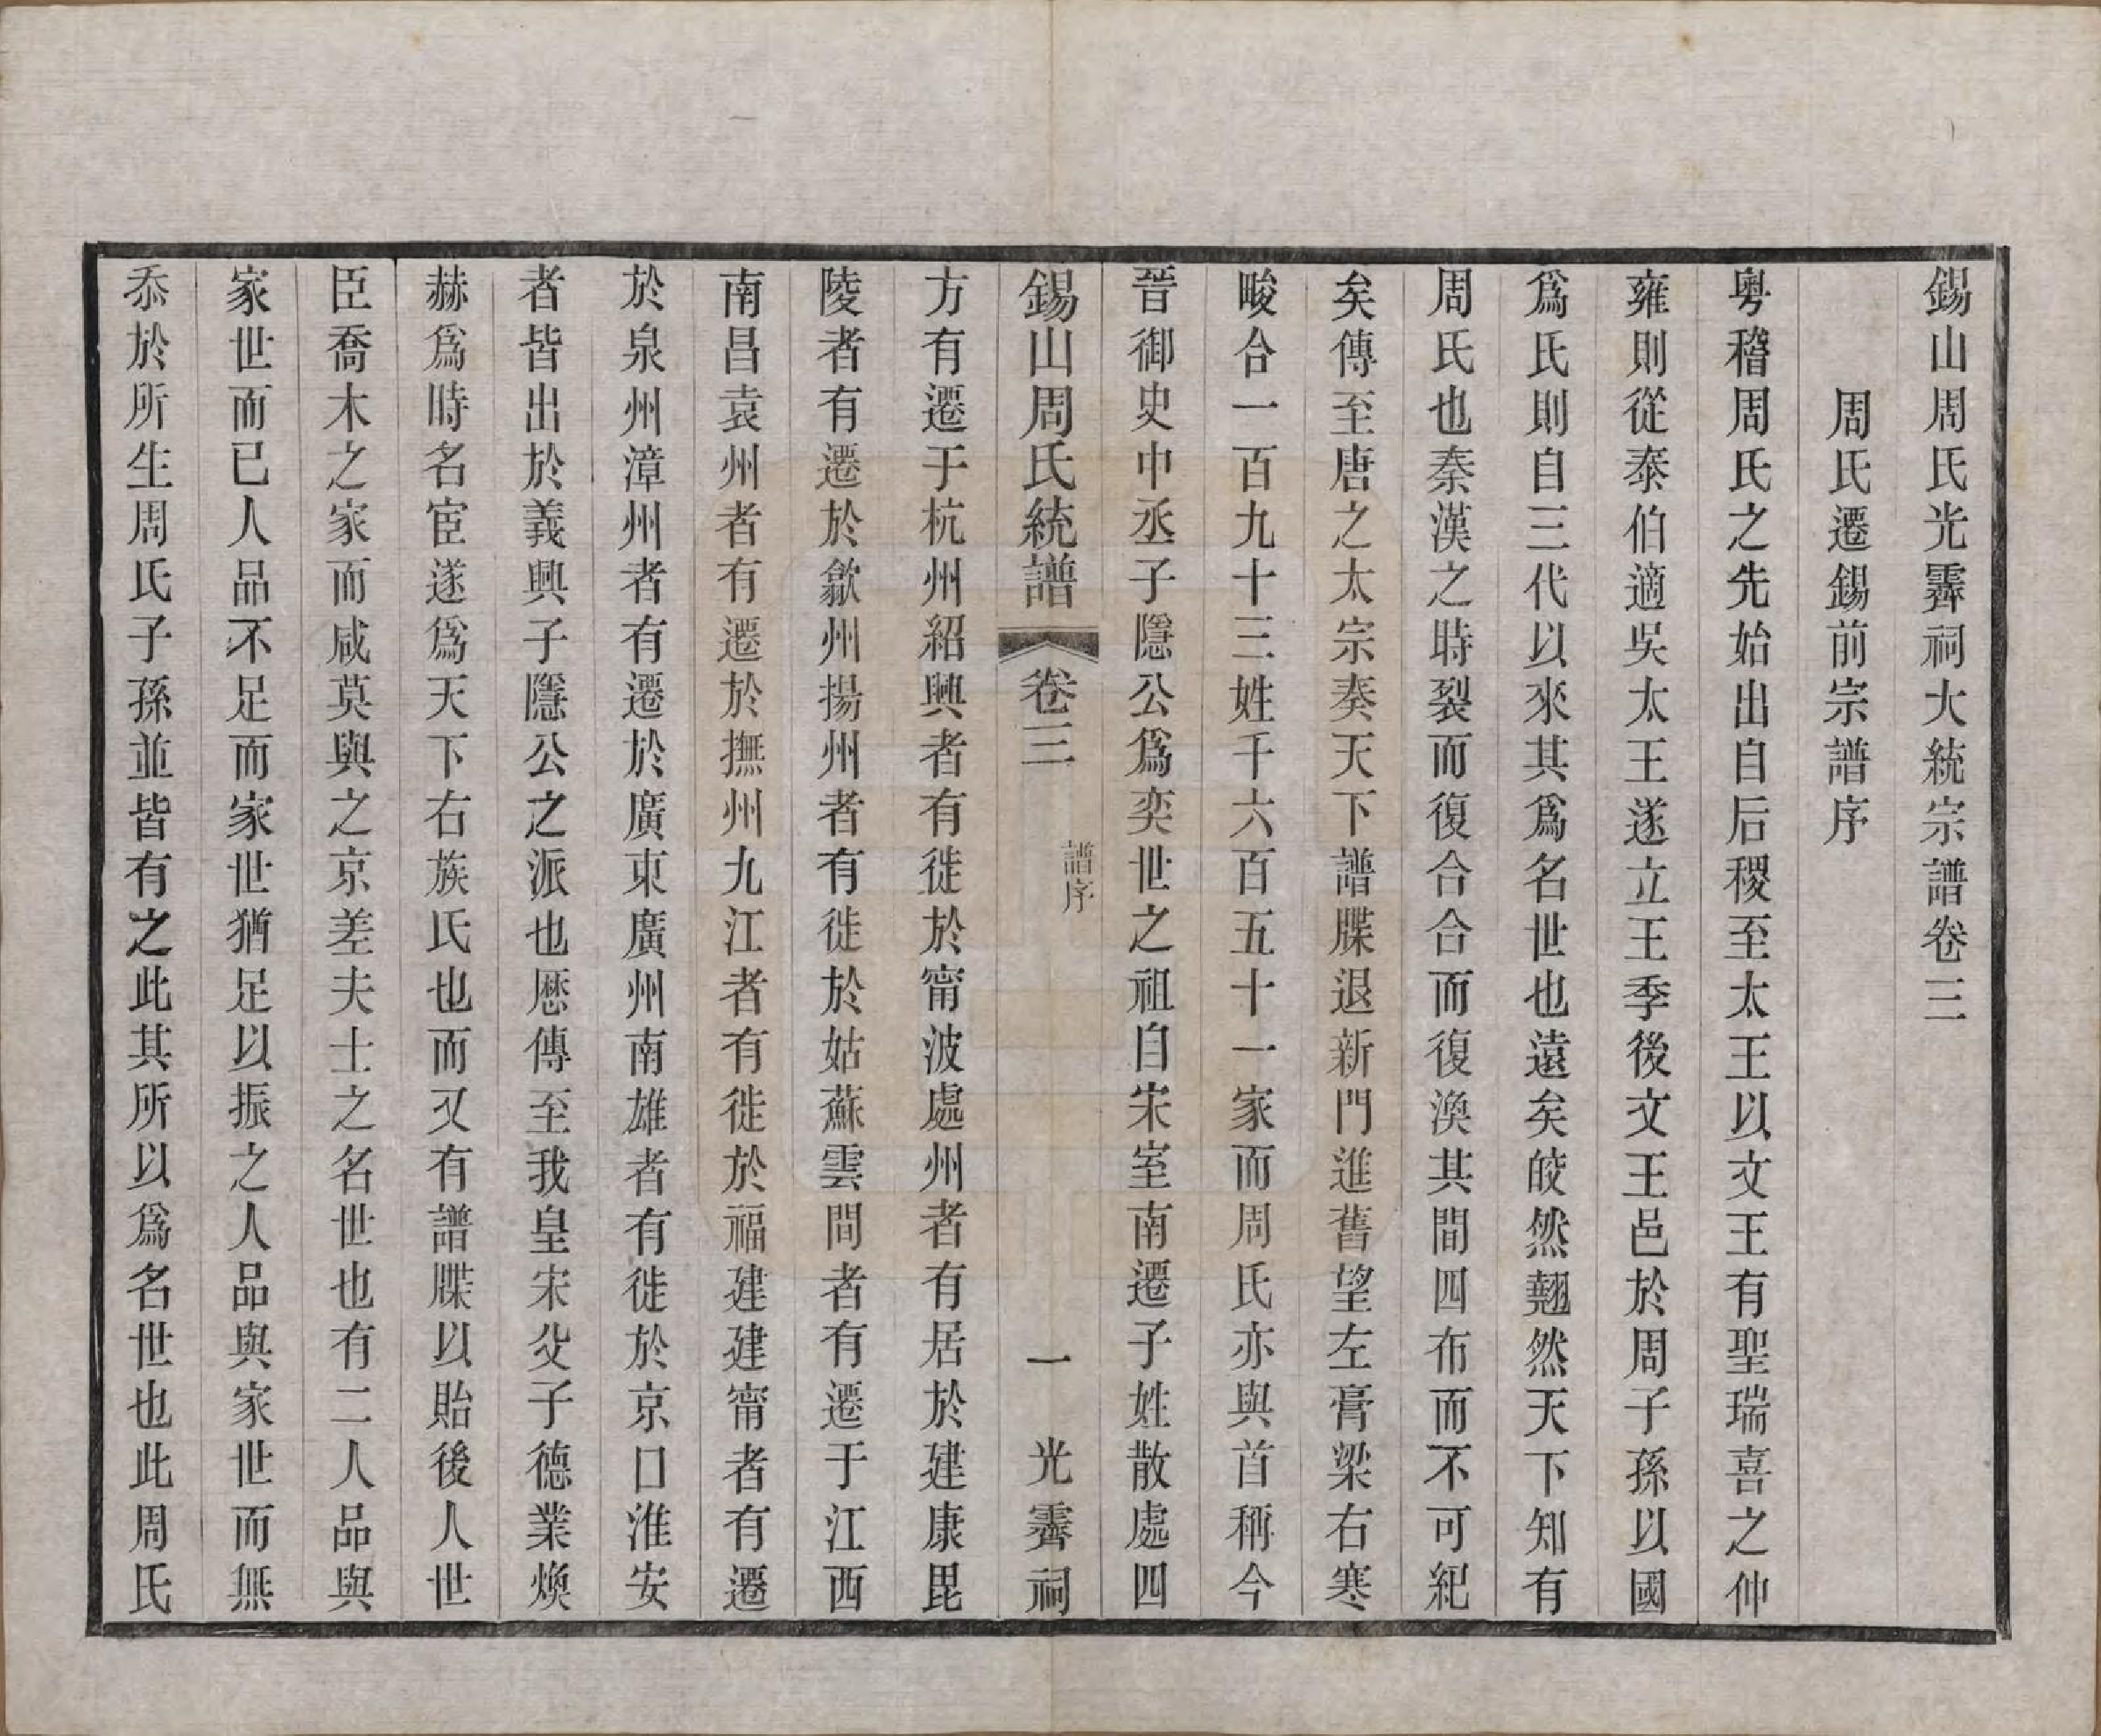 錫山周氏光霽祠大統宗譜卷三
周氏遷錫前宗譜序
粵稽周氏之先始出自后稷至太王以文王有聖瑞喜之仲
雍則從泰伯適吳太王遂立王季後文王邑於周子孫以國
爲氏則自三代以來其爲名世也遠矣皎然翹然天下知有
周氏也秦漢之時裂而復合合而復渙其間四布而不可紀
矣傳至唐之太宗奏天下譜牒退新門進舊望左膏梁右寒
畯合一百九十三姓千六百五十一家而周氏亦與首稱今
晉御史中丞子隱公爲奕世之祖自宋室南遷子姓散處四
錫山周氏統譜 卷三 譜序 一 光霽祠
方有遷于杭州紹興者有徙於甯波處州者有居於建康毘
陵者有遷於歙州揚州者有徙於姑蘇雲間者有遷于江西
南昌袁州者有遷於撫州九江者有徙於福建建甯者有遷
於泉州漳州者有遷於廣東廣州南雄者有徙於京口淮安
者皆出於義興子隱公之派也歷傳至我皇宋父子德業煥
赫爲時名宦遂爲天下右族氏也而又有譜牒以貽後人世
臣喬木之家而咸莫與之京差夫士之名世也有二人品與
家世而已人品不足而家世猶足以振之人品與家世而無
忝於所生周氏子孫並皆有之此其所以爲名世也此周氏